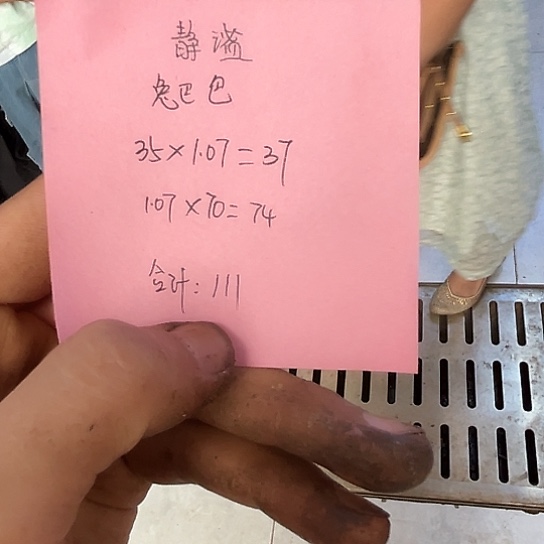 静谧
兔巴巴
35×1.07=37
1.07×70=74
合计：111